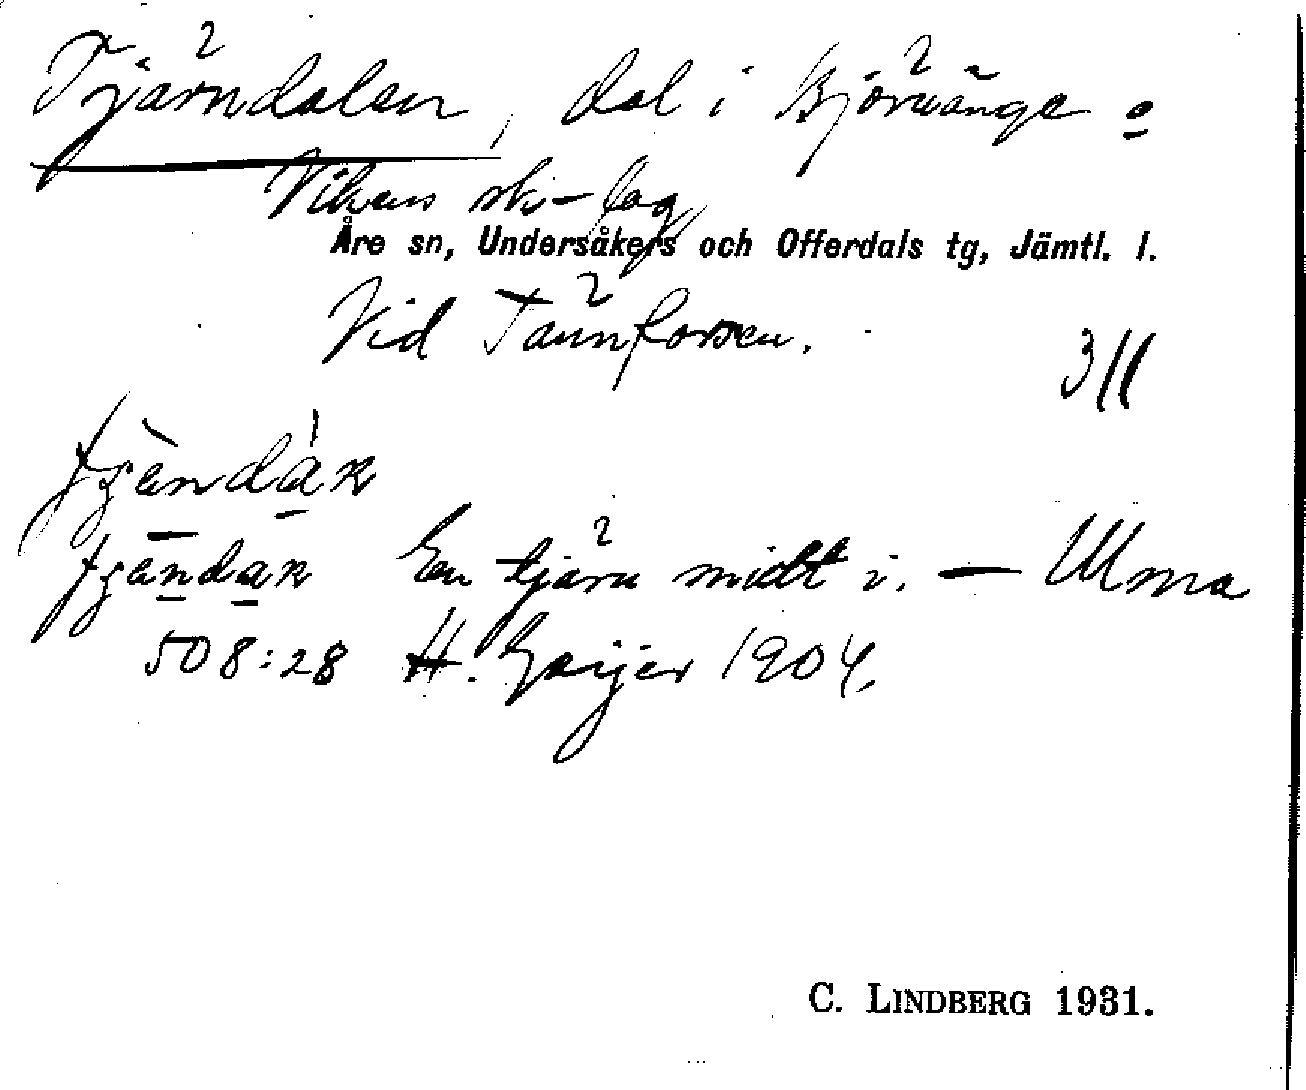 Tjärndalen, dal i Björnänge o
Vikens sk-lag
Åre sn, Undersåkers och Offerdals tg, Jämtl. l.
Vid Tännforsen.
3/11
En tjärn midt i. — Ulma
508:28 H. Geijer 1904.
C. LINDBERG 1931.